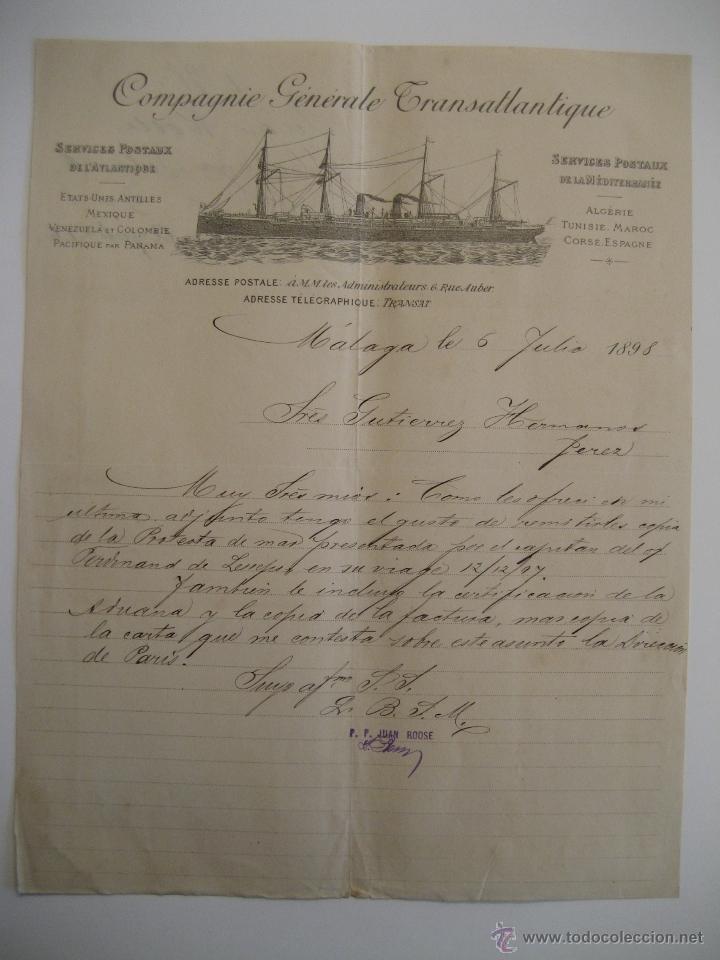 Compagnie Générale Transatlantique
SERVICES POSTAUX
DE L'ATLANTIQUE
ETATS-UNIS. ANTILLES
MEXIQUE
VENEZUELA ET COLOMBIE
PACIFIQUE PAR PANAMA
SERVICES POSTAUX
DE LA MÉDITERRANÉE
ALGÉRIE
TUNISIE. MAROC
CORSE. ESPAGNE
ADRESSE POSTALE: à M.M. les Administrateurs 6. Rue Auber.
ADRESSE TÉLÉGRAPHIQUE: TRANSAT
Málaga le 6 Julio 1898
Srés Gutierrez Hermanos
Jerez
Muy Srés mios: Como les ofreci en mi
ultima, adjunto tengo el gusto de remitirles copia
de la Protesta de mar presentada por el capitan del
Ferdinand de Lesseps, en su viage 12/12/97.
Tambien le incluyo la certificacion de la
Aduana y la copia de la factura, mas copia de
la carta, que me contesta sobre este asunto la Direccion
de Paris.
Suyo afmo S. S.
Q. B. S. M.
P. P. JUAN ROOSE
todocoleccion.net